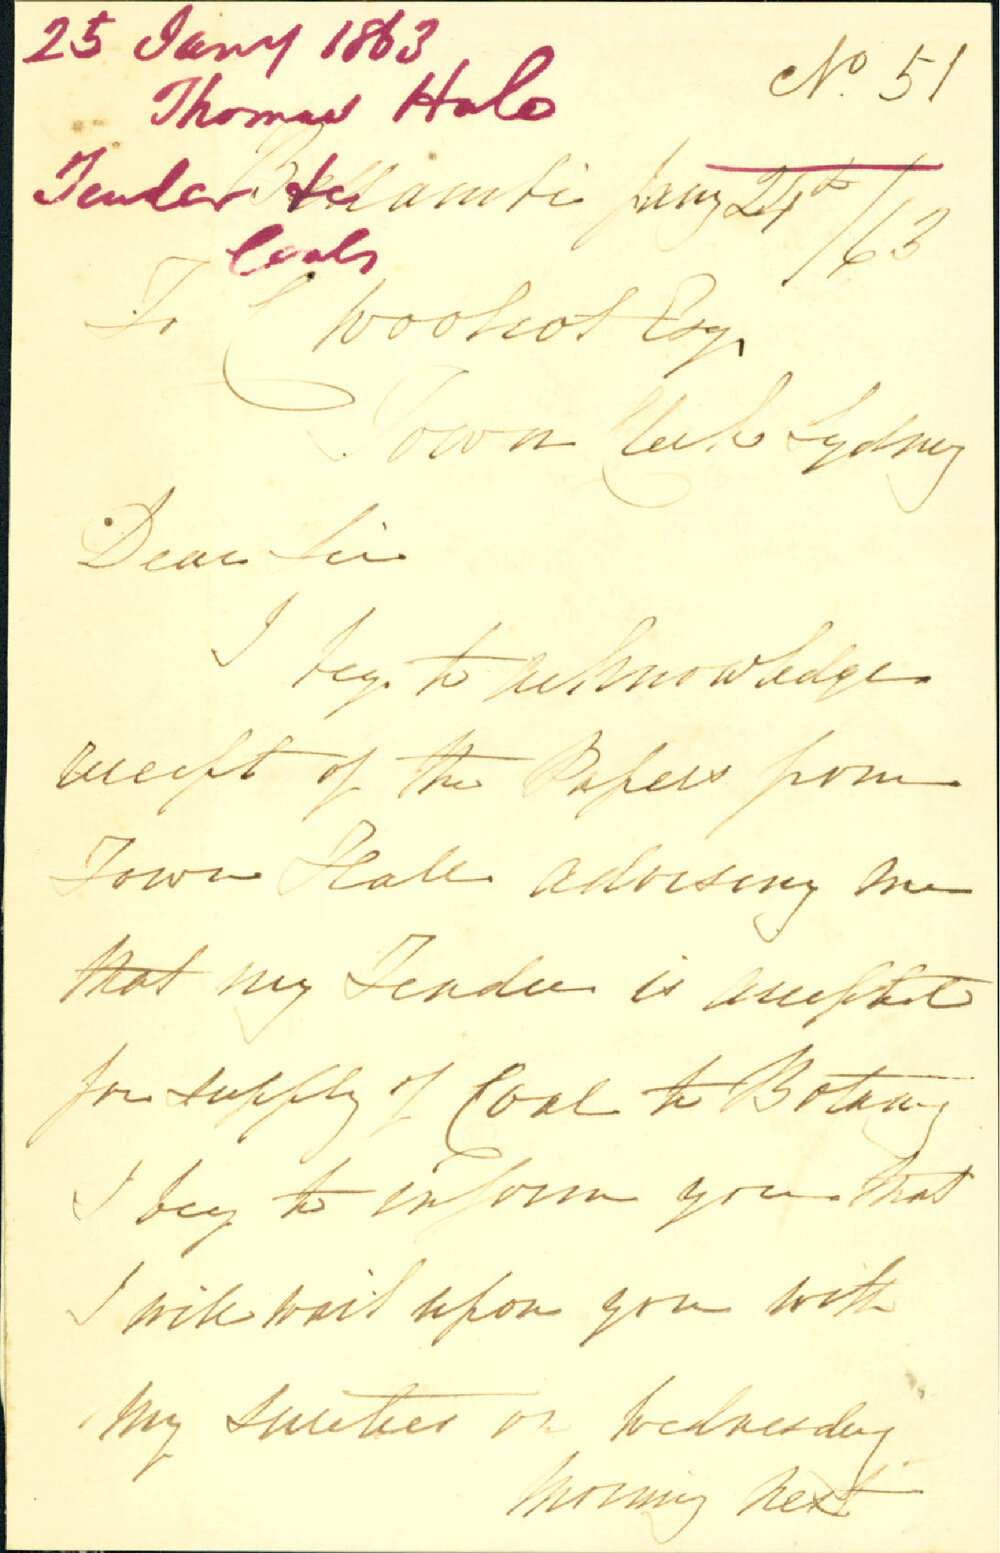 25 Jany 1863
No. 51
Thomas Hale
Tender for
Coals
Bellambi Jany 24th/63
To C Woolcot Esq,
Town Clerk Sydney
Dear Sir
I beg to acknowledge
receipt of the Papers from
Town Hall advising me
that my Tender is accepted
for supply of Coal to Botany
I beg to inform you that
I will wait upon you with
My sureties on Wednesday
Morning next